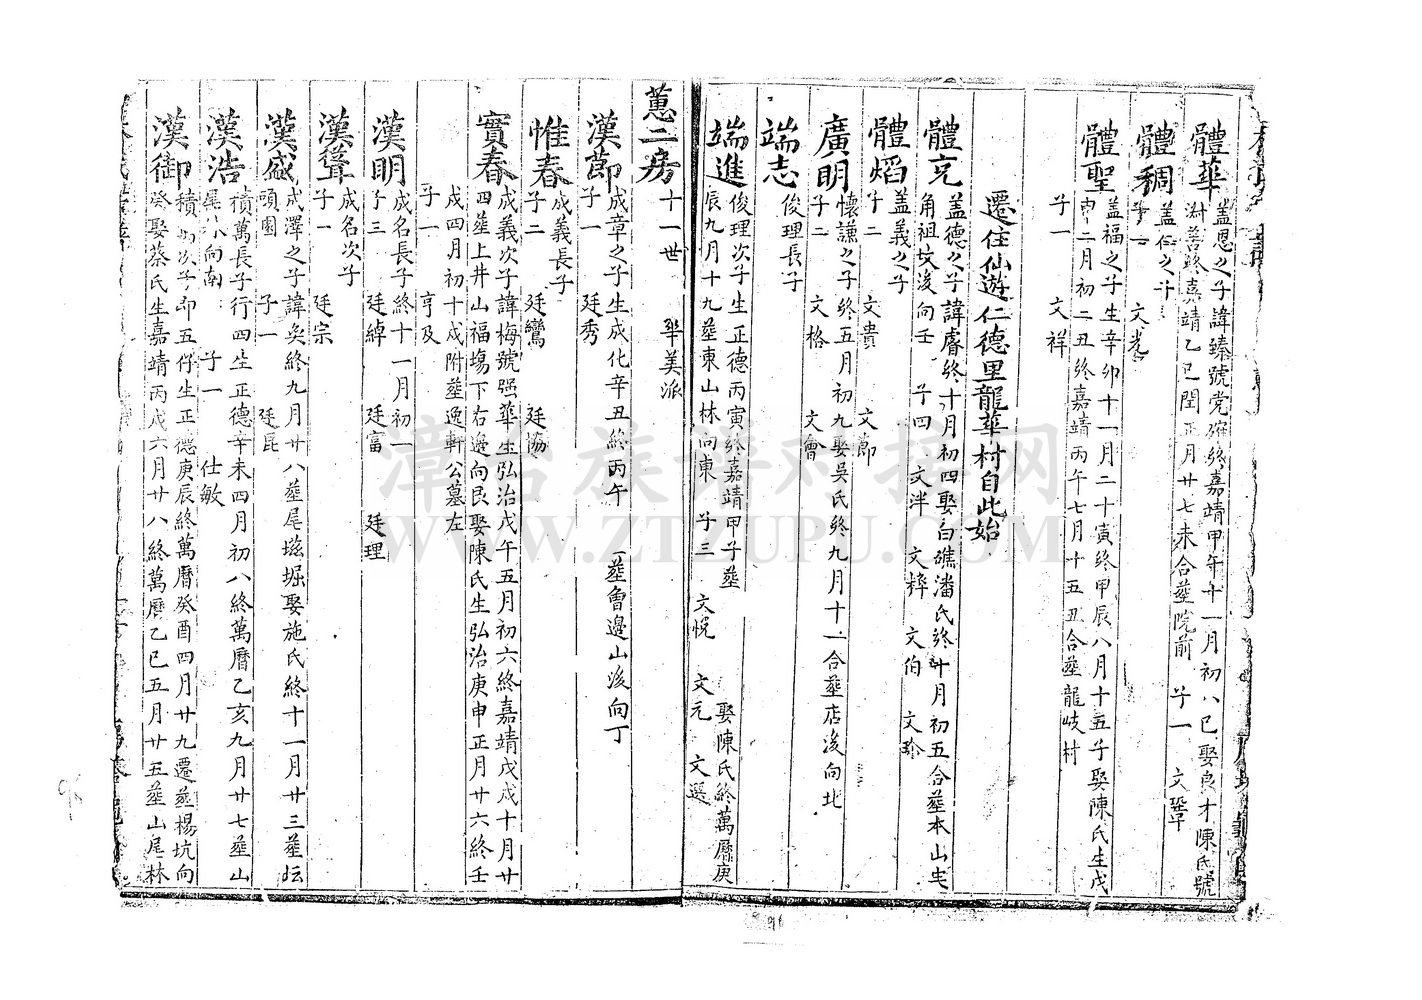 體華
蓋恩之子諱臻號党
終嘉靖甲午十一月初八巳娶良才陳氏號
淑善終嘉靖乙巳閏正月廿七未合葬院前 子一 文鞏
體稠
蓋仁之子
文巻
體聖
蓋福之子生辛卯十一月二十寅終甲辰八月十五子娶陳氏生戊
申二月初二丑終嘉靖丙午七月十五丑合葬龍岐村
子一 文祥
遷住仙遊仁德里龍華村自此始
體充
蓋德之子諱睿終十月初四娶白礁潘氏終十月初五合葬本山宅
角祖坟後向壬 子四 文泮 文粹 文伯 文珍
體熖
蓋義之子
子二 文貴 文節
廣明
懷謙之子終五月初九娶吳氏終九月十一合葬店後向北
子二 文格 文會
端志
俊理長子
端進
俊理次子生正德丙寅終嘉靖甲子葬
娶陳氏終萬曆庚
辰九月十九葬東山林向東 子三 文悅 文元 文選
蕙二房
十一世 華美派
漢節
成章之子生成化辛丑終丙午 葬會邊山後向丁
子一 廷秀
惟春
成義長子
子二 廷鸞 廷協
實春
成義次子諱梅號强華生弘治戊午五月初六終嘉靖戊戌十月廿
四葬上井山福塲下右邊向艮娶陳氏生弘治庚申正月廿六終壬
戌四月初十戌附葬逸軒公墓左
子一 亨及
漢明
成名長子終十一月初一
子三 廷綽 廷富 廷理
漢聳
成名次子
子一 廷宗
漢盛
成澤之子諱矣終九月廿八葬尾𡵺堀娶施氏終十一月廿三葬坛
頭園 子一 廷昆
漢浩
積萬長子行四生正德辛未四月初八終萬曆乙亥九月廿七葬山
尾 向南 子一 仕敏
漢御
積 次子 五行生正德庚辰終萬曆癸酉四月廿九遷葬楊坑向
癸娶蔡氏生嘉靖丙戌六月廿八終萬曆乙巳五月廿五葬山尾林
漳台族谱对接网
WWW.ZTZUPU.COM